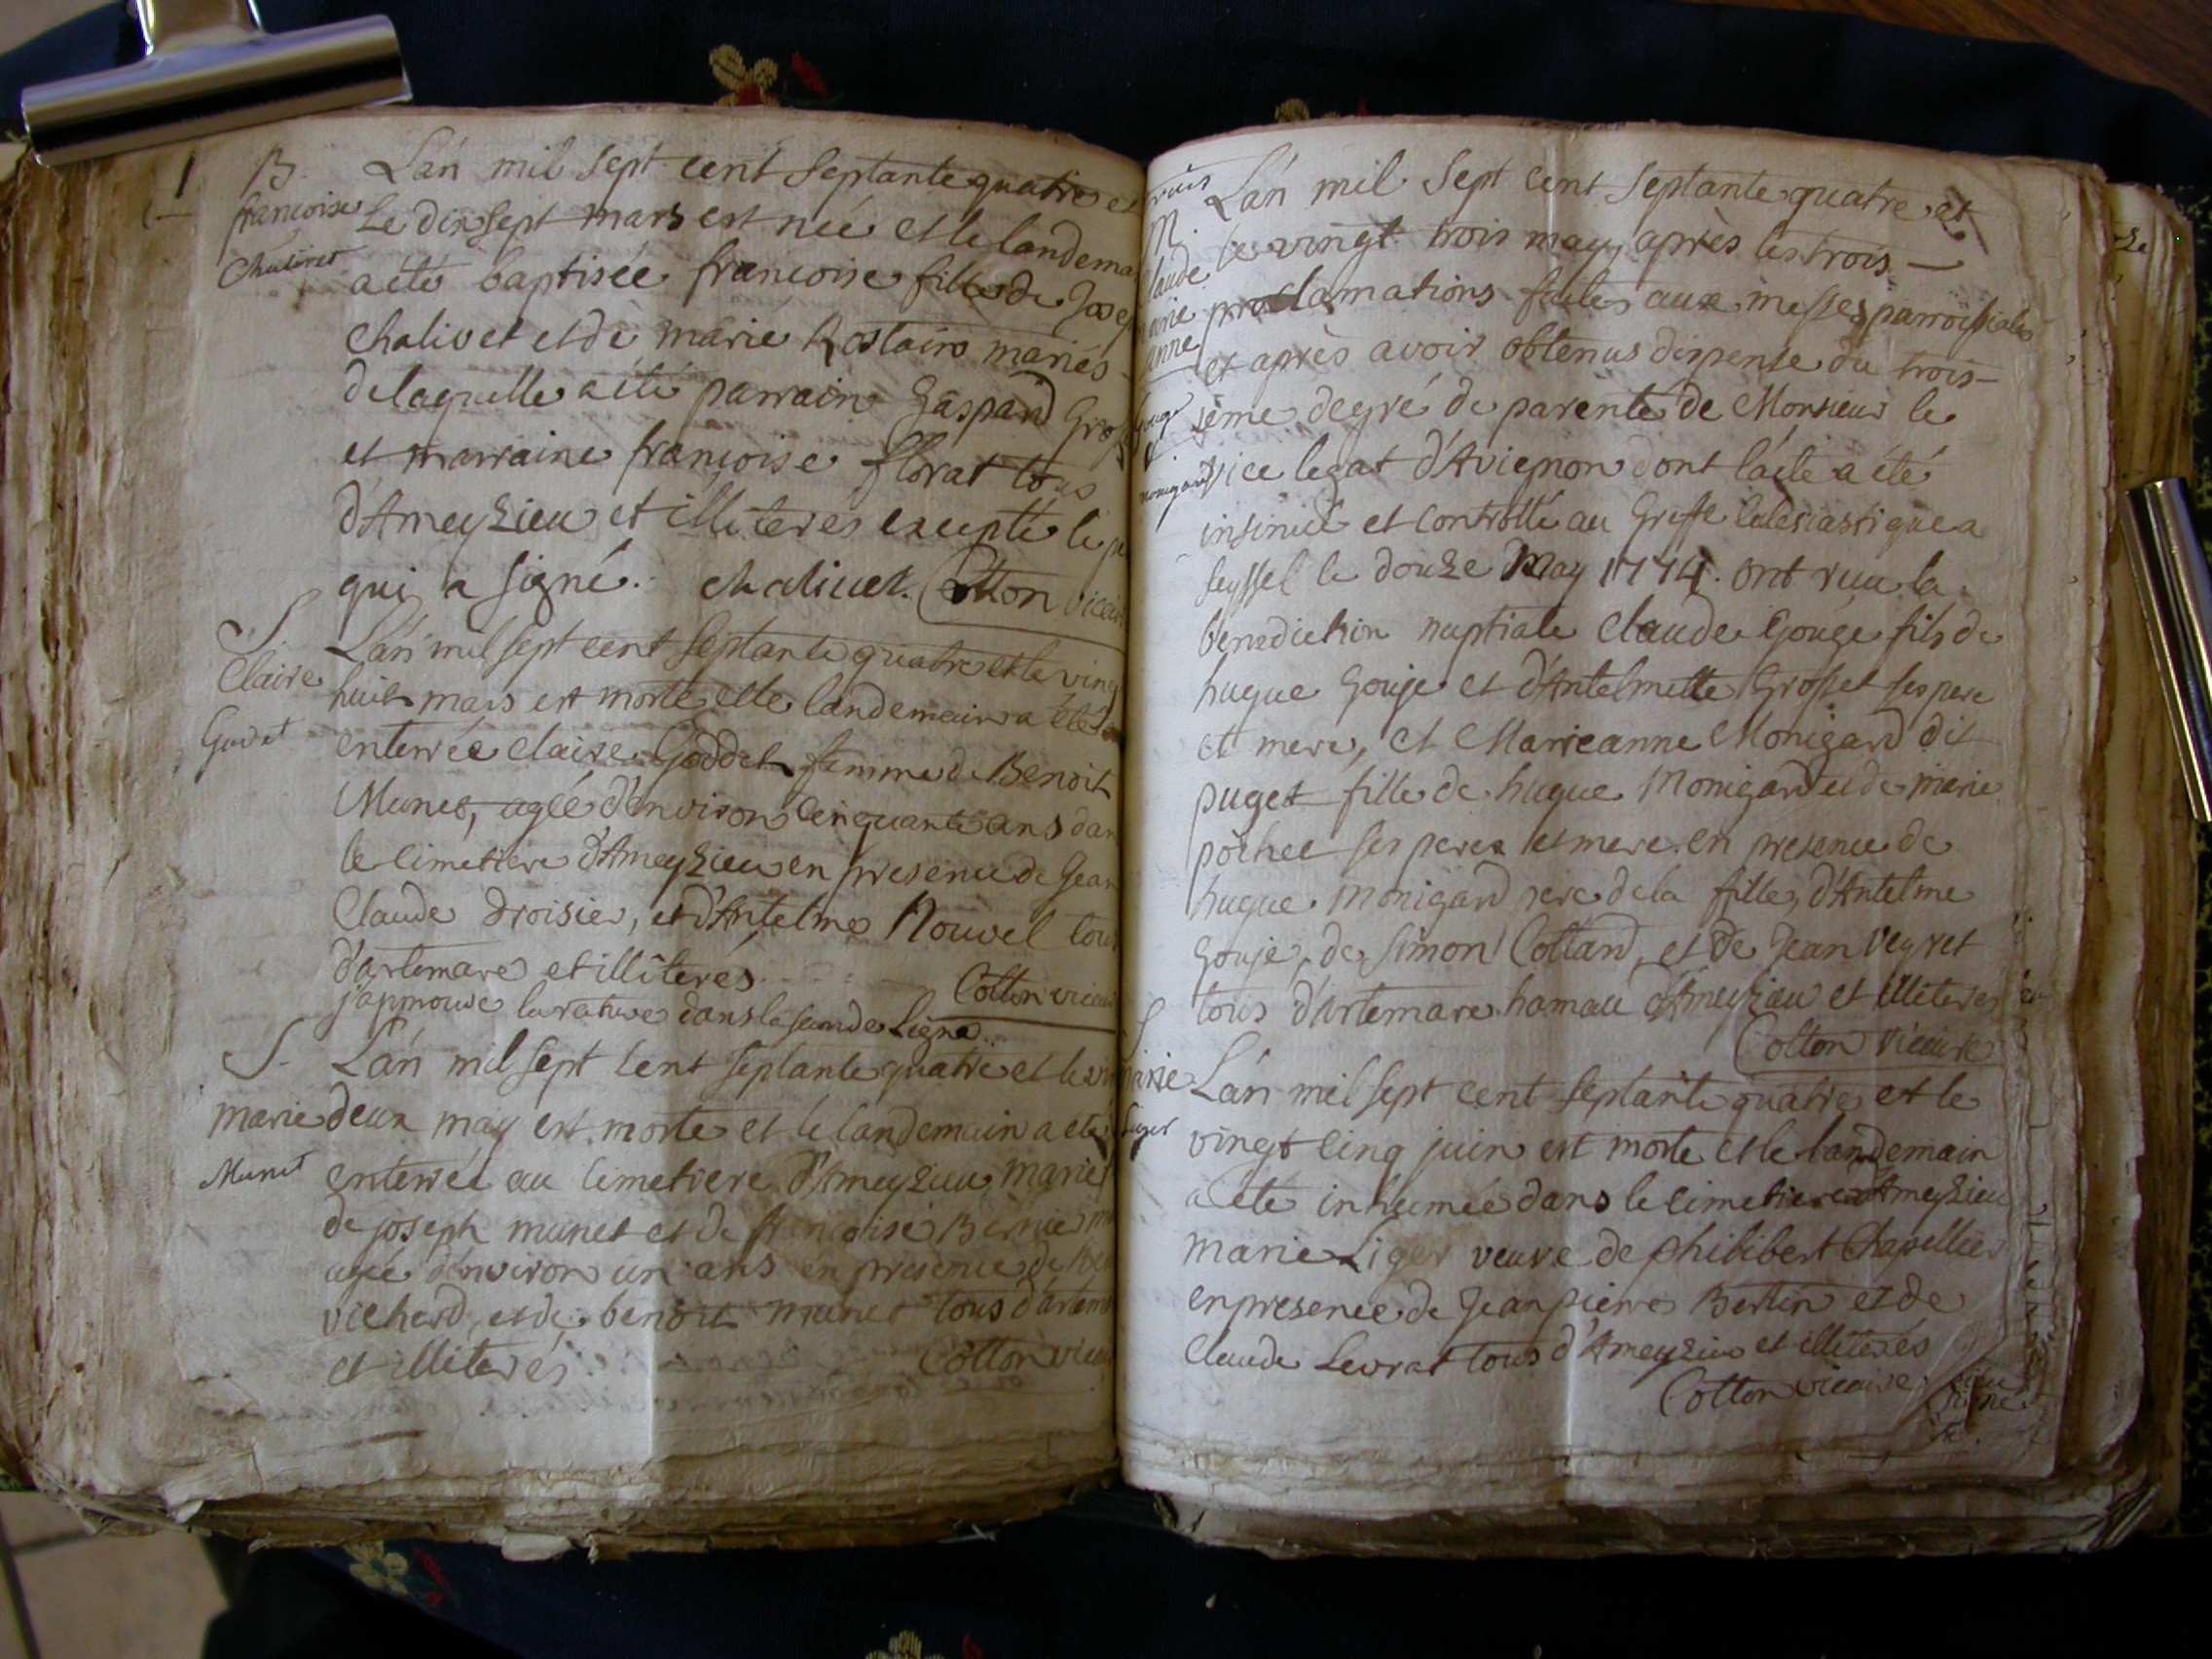 B. L'an mil sept cent Septante quatre et
francoise Le dix sept mars est née et le landemai
Chalivet a été baptisée francoise fille de Jose
Chalivet et de marie Rostaire mariés
de laquelle a été parrain Gaspard Gros
et marraine françoise florat tous
d'Ameyzieu et illiteres excepté le
qui a signé. chalivet. Cotton vicair
S. L'an mil sept cent septante quatre et le ving
Claire huit mars est morte et le landemain a été
Gudet enterrée claire Goddet femme de Benoit
Munet, agée d'environ cinquante ans dan
le cimetiere d'Ameyzieu en presence de Jean
Claude Droisier, et d'Antelme Nouvel tou
d'artemare et illiterés. Cotton vicai
j'approuve la rature dans la seconde Ligne.
S. L'an mil sept cent septante quatre et le vin
marie deux may est morte et le landemain a été
Munet enterrée au cimetiere d'Ameyzieu marie
de joseph munet et de francoise Bernier
agée d'environ un ans en presence de
vichard, et de benoit munet tous d'artem
et illiterés Cotton vicai
M. L'an mil Sept cent Septante quatre et
le vingt trois may, après les trois
laude proclamations faites aux messes parroissiales
anne et après avoir obtenus dispense du trois-
ieme degré de parenté de Monsieur le
monigard vice legat d'Avignon dont l'acte a été
insinué et controllé au Greffe Eclesiastique a
seyssel le douze May 1774. ont reçu la
benediction nuptiale Claude Gouge fils de
hugue Gouje et d'Antelmette Grosset ses pere
et mere, et Marieanne Monigard dit
puget fille de hugue Monigard et de marie
pochet ses peres et mere. en presence de
hugue Monigard pere de la fille, d'Antelme
Gouje, de Simon Cottard, et de Jean Veyret
tous d'artemare hamau d'Ameyzieu et illiterés
Cotton vicaire
S
marie L'an mil sept cent septante quatre et le
Liger vingt cinq juin est morte et le landemain
a été inhumée dans le cimetiere d'Ameyzieu
marie Liger veuve de philibert Chapellier
en presence de Jean pierre Bertin et de
Claude Levrat tous d'Ameyzieu et illiterés
Cotton vicaire